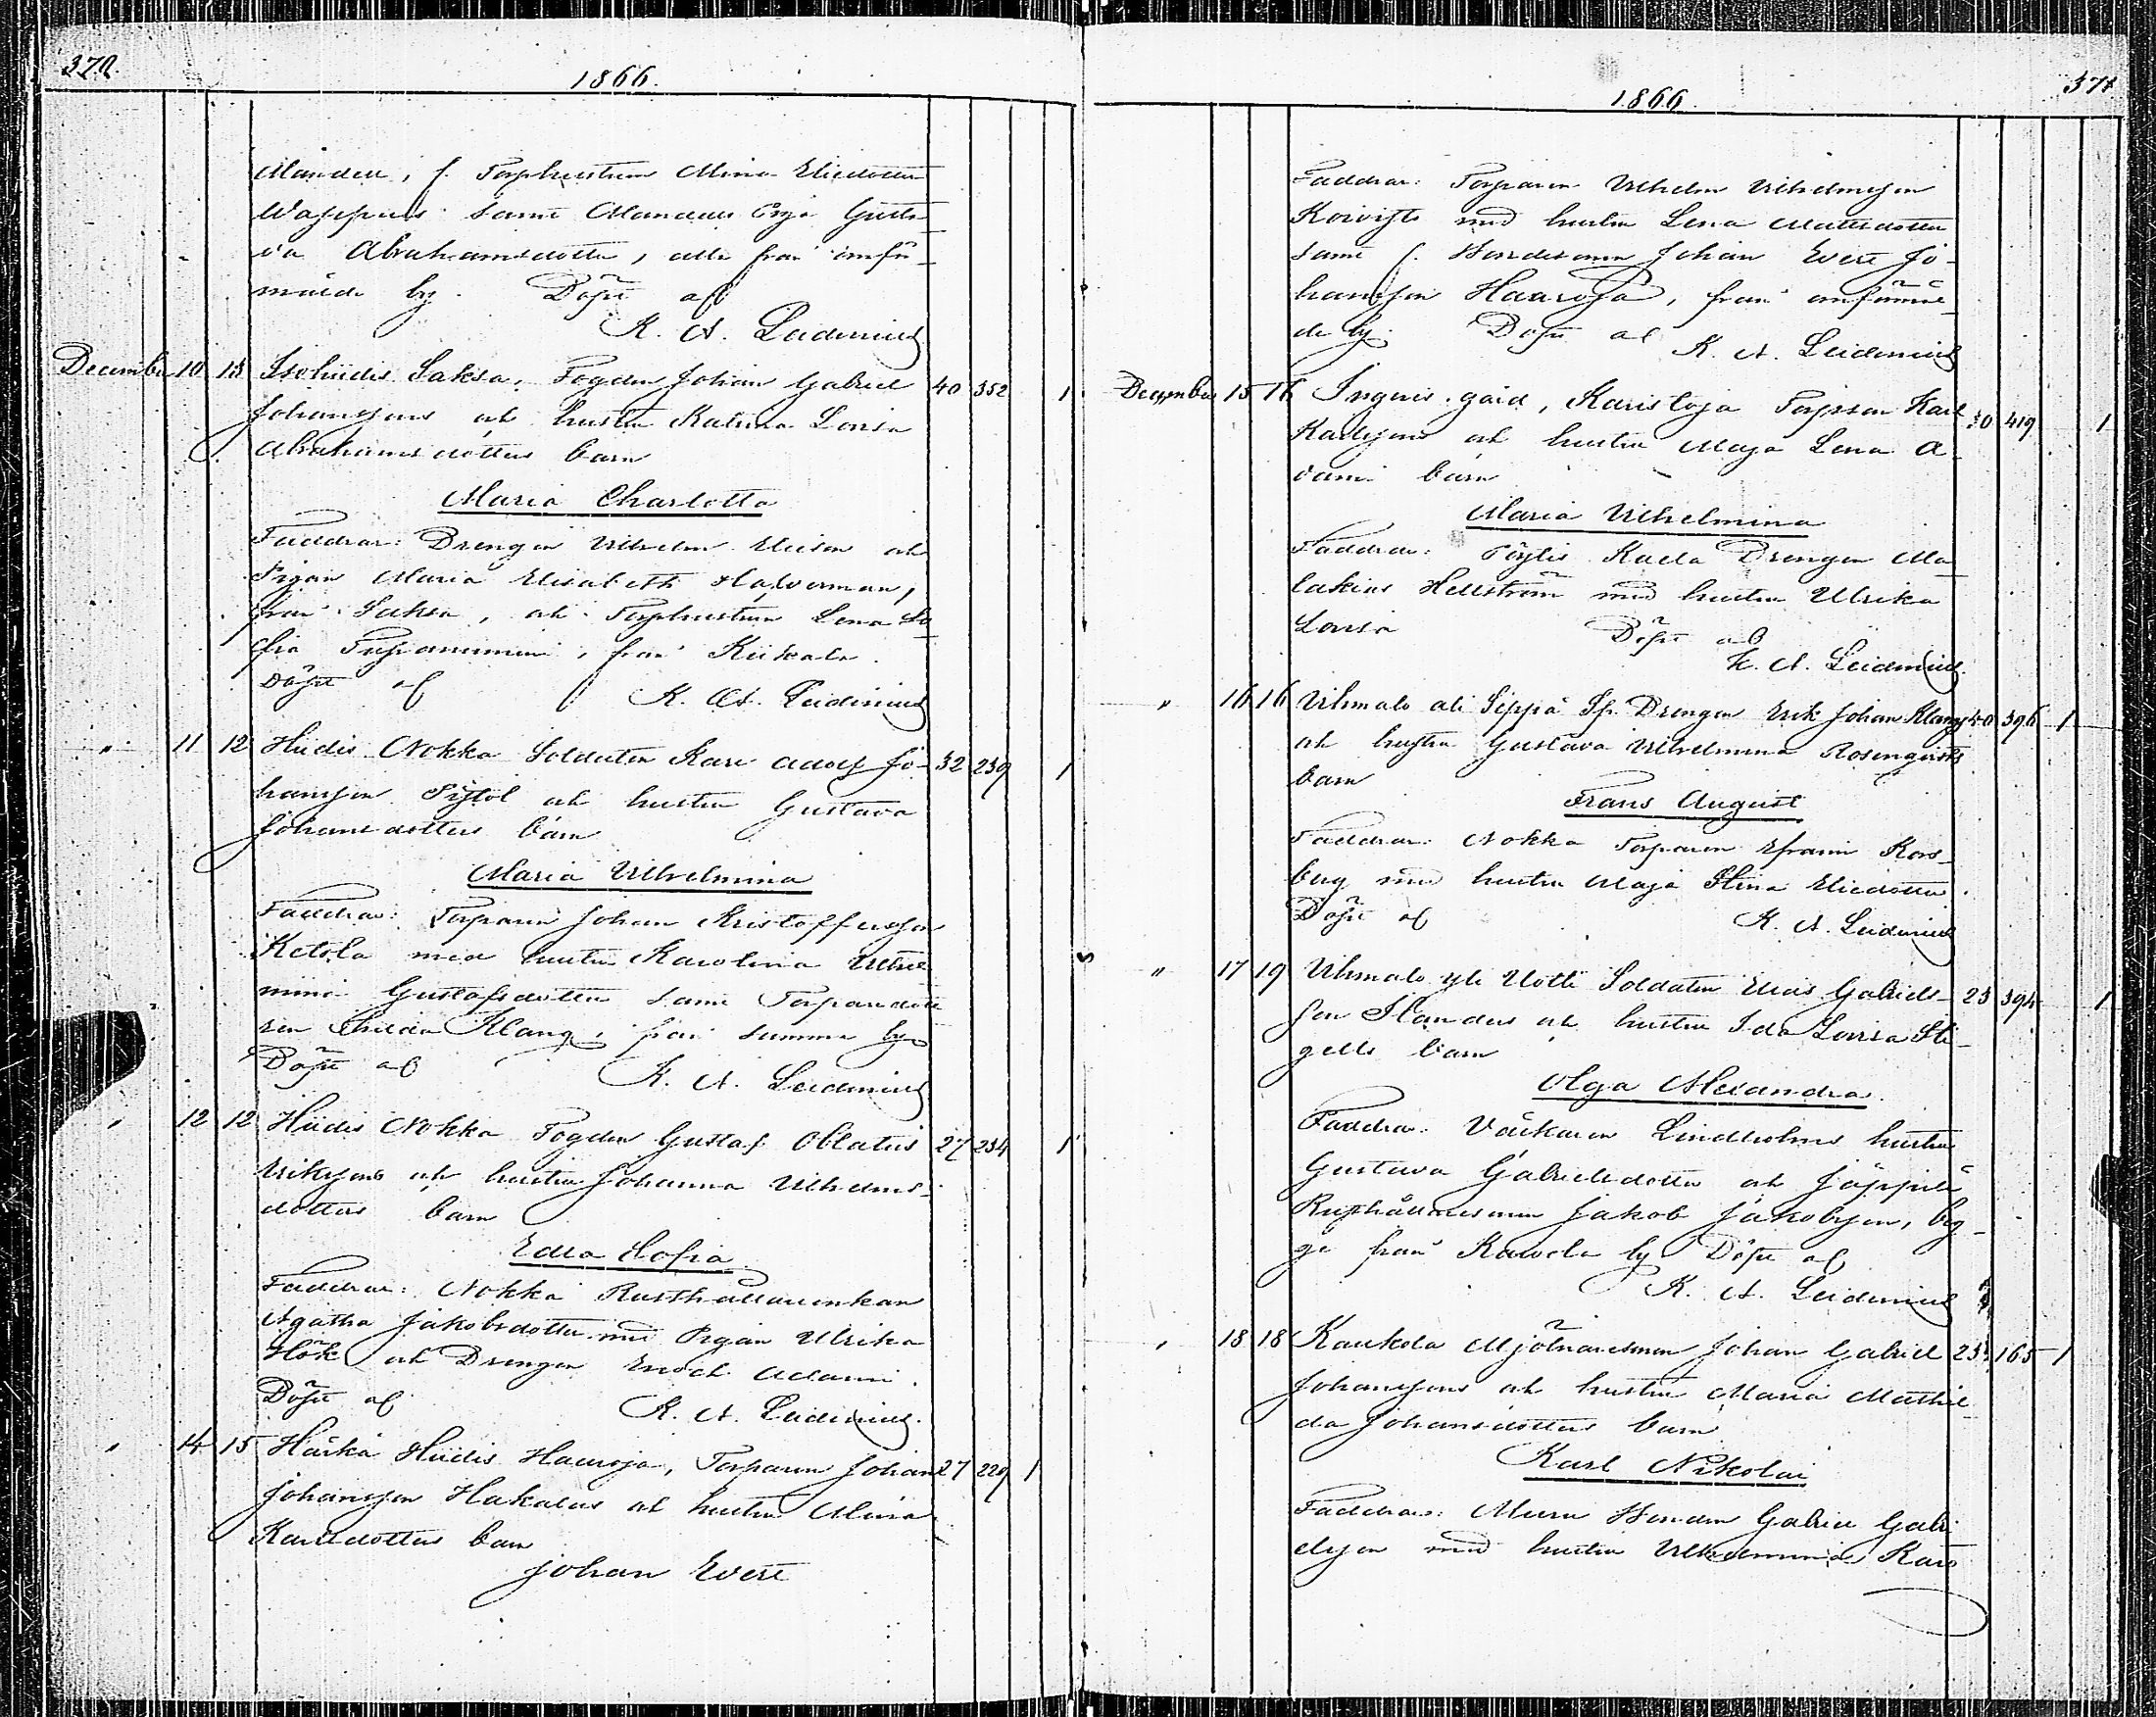 370.
1866.
Mandell, f. Torphustrun Mina Eliedotter
samt Mandell Gusta-
va Abrahamsdotter, alla från omför-
mälde by. Döpt af
K. A. Leidenius
December 10 13 Isohiidis Saksa, Fogden Johan Gabriel 40 352 1
Johanssons och hustru Katrina Lovisa
Abrahamsdotters barn
Maria Charlotta
Faddrar: Drengen Vilhelm Eliesson och
Pigan Maria Elisabeth
från Saksa, och Torphustrun Lena So-
fia, från Kiikala.
Döpt af K. A. Leidenius
" 11 12 Hiidis Nokka Soldaten Karl Adolf Jo- 32 239 1
hansson Pistol och hustru Gustava
Johansdotters barn
Maria Vilhelmina
Faddrar: Torparen Johan Kristoffersson
Ketola med hustru Karolina Vilhel-
mina Gustafsdotter samt Torparedott-
ren Hilda Klang, från samma by
Döpt af K. A. Leidenius
" 12 12 Hiidis Nokka Fogden Gustaf Oblatus 27 234 1
Erikssons och hustru Johanna Vilhelms-
dotters barn
Edla Sofia
Faddrar: Nokka Rusthållarenkan
Agatha Jakobsdotter med Pigan Ulrika
Hök och Drengen Enoch Adami.
Döpt af K. A. Leidenius.
" 14 15 Härkä Hiidis Haaroja, Torparen Johan 27 229 1
Johansson Hakalas och hustru Mina
Karlsdotters barn
Johan Evert
371
1866.
Faddrar: Torparen Vilhelm Vilhelmsson
Koivisto med hustru Lena Mattsdotter
samt f. Bondesonen Johan Evert Jo-
hansson Haaroja, från omförmäl-
de by. Döpt af K. A. Leidenius
December 15 16 Inguis gård, Karistoja Torparen Karl 30 419 1
Karlssons och hustru Maja Lena A-
dami barn
Maria Vilhelmina
Faddrar: Pöytis Kaela Drengen Ma-
lakias Hellström med hustru Ulrika
Lovisa Döpt af
K. A. Leidenius
" 16 16 Vihmalo ali Seppä Sp. Drengen Erik Johan Klangs 40 396 1
och hustru Gustava Vilhelmina Rosenqvists
barn
Frans August
Faddrar: Nokka Torparen Efraim Kors-
berg med hustru Maja Stina Eliedotter.
Döpt af K. A. Leidenius
" 17 19 Vihmalo yli Uotti Soldaten Elias Gabriels- 23 394 1
son Standers och hustru Ida Lovisa Sti-
gells barn
Olga Alexandra.
Faddrar: Väckaren Lindholms hustru
Gustava Gabrielsdotter och Jäppilä
Rusthållaresonen Jakob Jakobsson, beg-
ge från Kavela by Döpt af
K. A. Leidenius
" 18 18 Kaukola Mjölnaresonen Johan Gabriel 23 165 1
Johanssons och hustru Maria Mathil-
da Johansdotters barn
Karl Nikolai
Faddrar: Muru Bonden Gabriel Gabri-
elsson med hustru Vilhelmina Karo